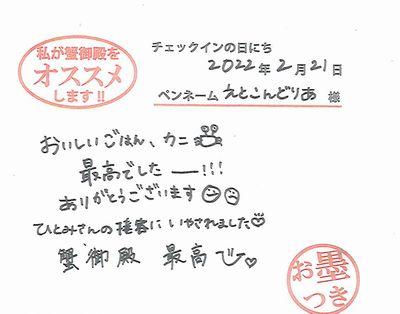 私が蟹御殿を
オススメ
します!!
チェックインの日にち
2022年2月21日
ペンネーム えとこんどりあ 様
おいしいごはん、カニ
最高でした ー!!!
ありがとうございます
ひとみさんの接客にいやされました♡
蟹御殿 最高で♡
お墨
つき